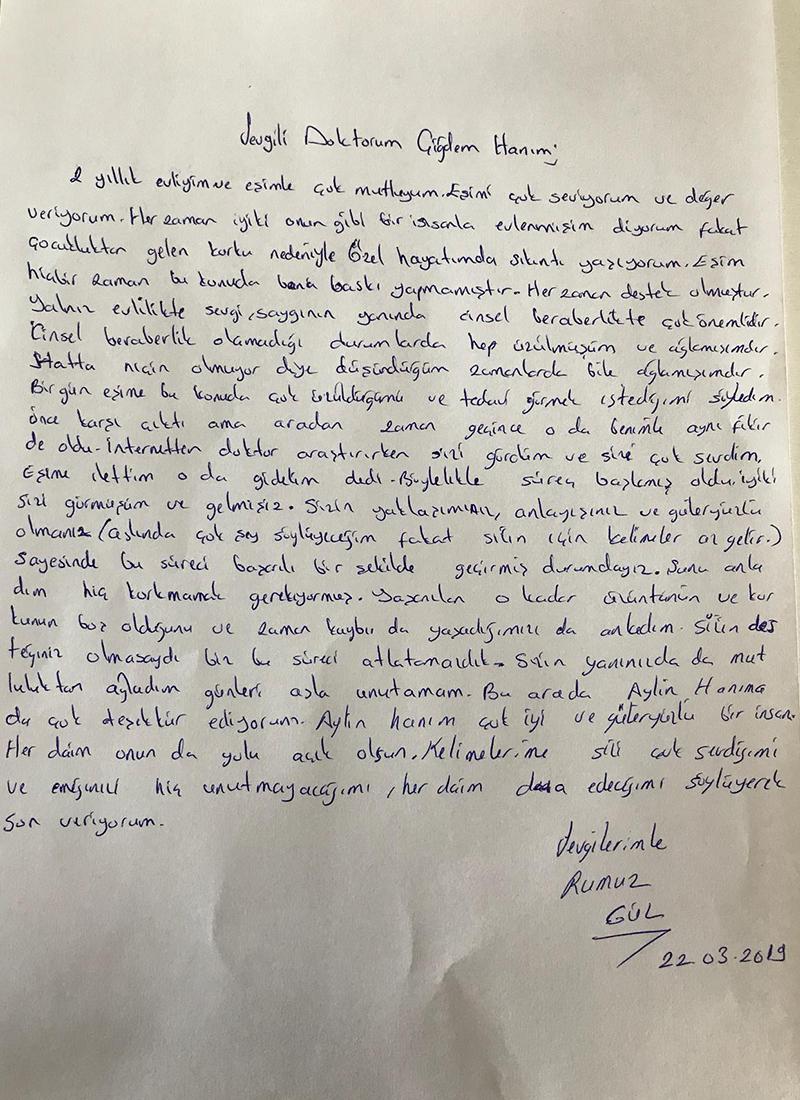 Sevgili Doktorum Çiğdem Hanım;
2 yıllık evliyim ve eşimle çok mutluyum. Eşimi çok seviyorum ve değer
veriyorum. Her zaman iyiki onun gibi bir insanla evlenmişim diyorum fakat
çocukluktan gelen korku nedeniyle özel hayatımda sıkıntı yaşıyorum. Eşim
hiçbir zaman bu konuda bana baskı yapmamıştır. Her zaman destek olmuştur.
Yalnız evlilikte sevgi, saygının yanında cinsel beraberlikte çok önemlidir.
Cinsel beraberlik olamadığı durumlarda hep üzülmüşüm ve ağlamışımdır.
Hatta niçin olmuyor diye düşündüğüm zamanlarda bile ağlamışımdır.
Bir gün eşime bu konuda çok üzüldüğümü ve tedavi görmek istediğimi söyledim.
önce karşı çıktı ama aradan zaman geçince o da benimle aynı fikir
de oldu. İnternetten doktor araştırırken sizi gördüm ve sizi çok sevdim.
Eşime ilettim o da gidelim dedi. Böylelikle süreç başlamış oldu. iyiki
sizi görmüşüm ve gelmişiz. Sizin yaklaşımınız, anlayışınız ve güleryüzlü
olmanız (aslında çok şey söylüyeceğim fakat sizin için kelimeler az gelir.)
sayesinde bu süreci başarılı bir şekilde geçirmiş durumdayız. Şunu anla
dım hiç korkmamak gerekiyormuş. Yaşanılan o kadar üzüntünün ve kor
kunun boş olduğunu ve zaman kaybı da yaşadığımızı da anladım. Sizin des
teğiniz olmasaydı biz bu süreci atlatamazdık. Sizin yanınızda da mut
luluktan ağladım günleri asla unutamam. Bu arada Aylin Hanıma
da çok teşekkür ediyorum. Aylin hanım çok iyi ve güleryüzlü bir insan.
Her daim onun da yolu açık olsun. Kelimelerime sizi çok sevdiğimi
ve emeğinizi hiç unutmayacağımı, her daim dua edeceğimi söylüyerek
son veriyorum.
Sevgilerimle
RUMUZ
GÜL
22.03.2019